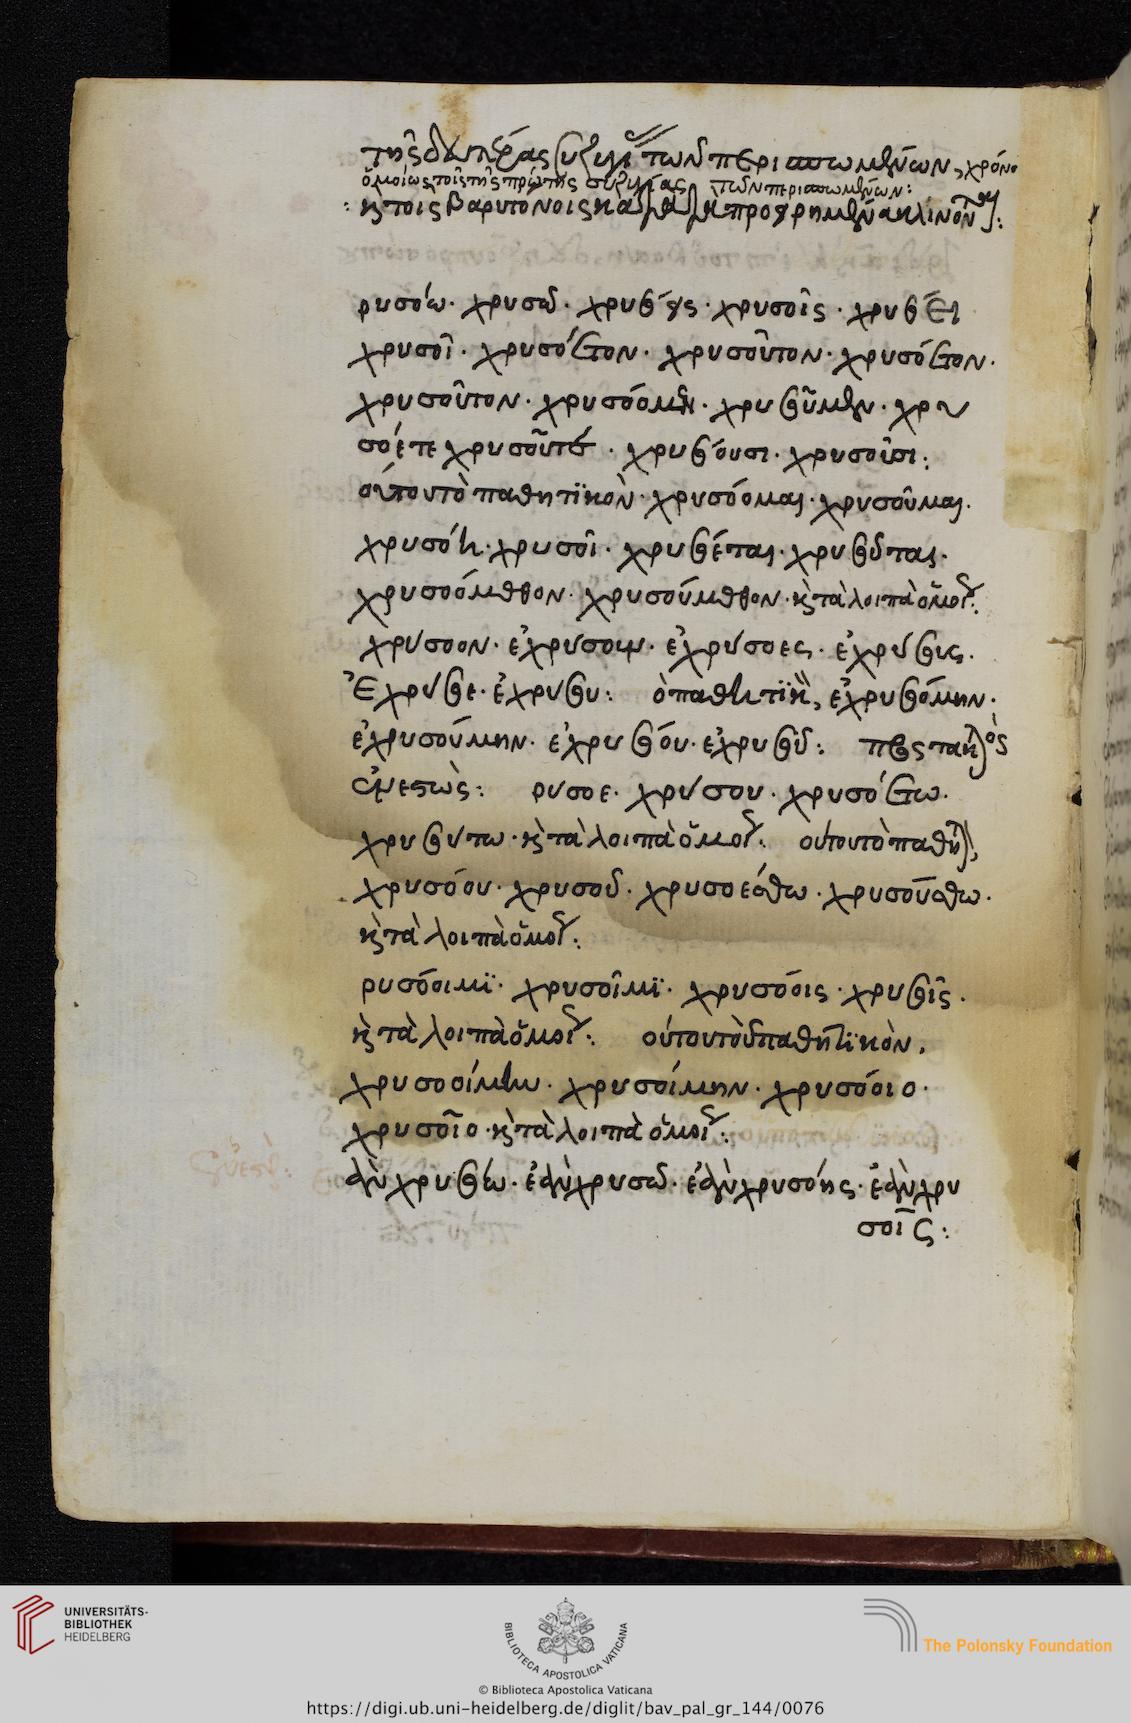 τῆς δευτέρας συζυγί τῶν περισπωμένων, χρόνο
ὁμοίως τοῖς τῆς πρώτης συζυγίας τῶν περισπωμένων:
: κ τοις βαρυτόνοις προειρημέν ακλίνον :
ρυσόω · χρυσῶ · χρυσόεις · χρυσοῖς · χρυσόει
χρυσοῖ · χρυσόετον · χρυσοῦτον · χρυσόετον ·
χρυσοῦτον · χρυσόομεν · χρυσοῦμεν · χρυ
σόετε χρυσοῦτε · χρυσόουσι · χρυσοῦσι :
οὕτου τὸ παθητϊκὸν · χρυσόομαι · χρυσοῦμαι ·
χρυσόη · χρυσοῖ · χρυσόεται · χρυσοῦται ·
χρυσοόμεθον · χρυσούμεθον · κ τὰ λοιπὰ ὅμοι :
χρυσοον · ἐχρύσουν · ἐχρύσοες · ἐχρύσους ·
Ἐχρύσοε · ἐχρύσου : ὁ παθητϊκ, ἐχρυσοόμην ·
ἐχρυσούμην · ἐχρυσόου · ἐχρυσοῦ : προστακτικὸς
ἐνεστὼς : ρυσοε · χρύσου · χρυσοέτω ·
χρυσούτω · κ τὰ λοιπὰ ὅμοι : οὕτου τὸ παθη,
χρυσόου · χρυσοῦ · χρυσοέσθω · χρυσούσθω ·
κ τὰ λοιπὰ ὅμοι :
ρυσόοιμϊ · χρυσοῖμϊ · χρυσόοις · χρυσοῖς ·
κ τὰ λοιπὰ ὅμοι : οὕτου τὸ παθητϊκὸν,
χρυσοοίμην · χρυσοίμην · χρυσόοιο ·
χρυσοῖο · κ τὰ λοιπὰ ὅμοι :
ὰν χρυσόω · ἐὰν χρυσῶ · ἐὰν χρυσόης · ἐὰν χρυ
σοῖς :
UNIVERSITÄTS-
BIBLIOTHEK
HEIDELBERG
BIBLIOTECA APOSTOLICA VATICANA
The Polonsky Foundation
© Biblioteca Apostolica Vaticana
https://digi.ub.uni-heidelberg.de/diglit/bav_pal_gr_144/0076